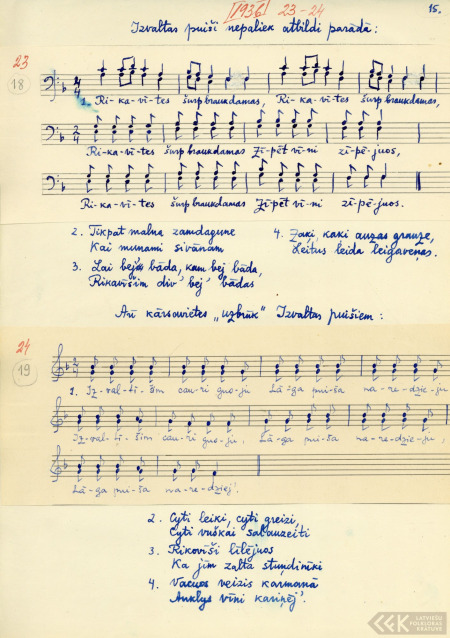 1936 23-24
15.
Izvaltas puiši nepaliek atbildi parādā:
23
18
1. Ri-ka-vī-tes šurp braukdamas, Ri-ka-vī-tes šurp braukdamas,
Ri-ka-vī-tes šurp braukdamas Zī-pēt vī-ni zī-pē-juos,
Ri-ka-vī-tes šurp braukdamas Zī-pēt vī-ni zī-pē-juos.
2. Tikpat malna zamdagune
Kai munami sivānam
3. Lai beja bāda, kam bej bāda,
Rikavīšim div' bej' bādas
4. Zaķi, kaķi auzas grauze,
Leitus leida leigaveņas.
Arī kārsavietes "uzbrūk" Izvaltas puišiem:
24
19
1. Iz-val-ti-šim cau-ri guo-ju Lā-ga pui-ša na-re-dzie-ju
Iz-val-ti-šim cau-ri guo-ju, Lā-ga pui-ša na-re-dzie-ju,
Lā-ga pui-ša na-re-dziej'.
2. Cyti leiki, cyti greizi,
Cyti vuškai sabauzeiti
3. Rikovīši lilējuos
Ka jīm zalta stuņdinīki
4. Vacuos veizis karmanā
Auklys vīni kariņēj'.
LATVIEŠU
FOLKLORAS
KRĀTUVE